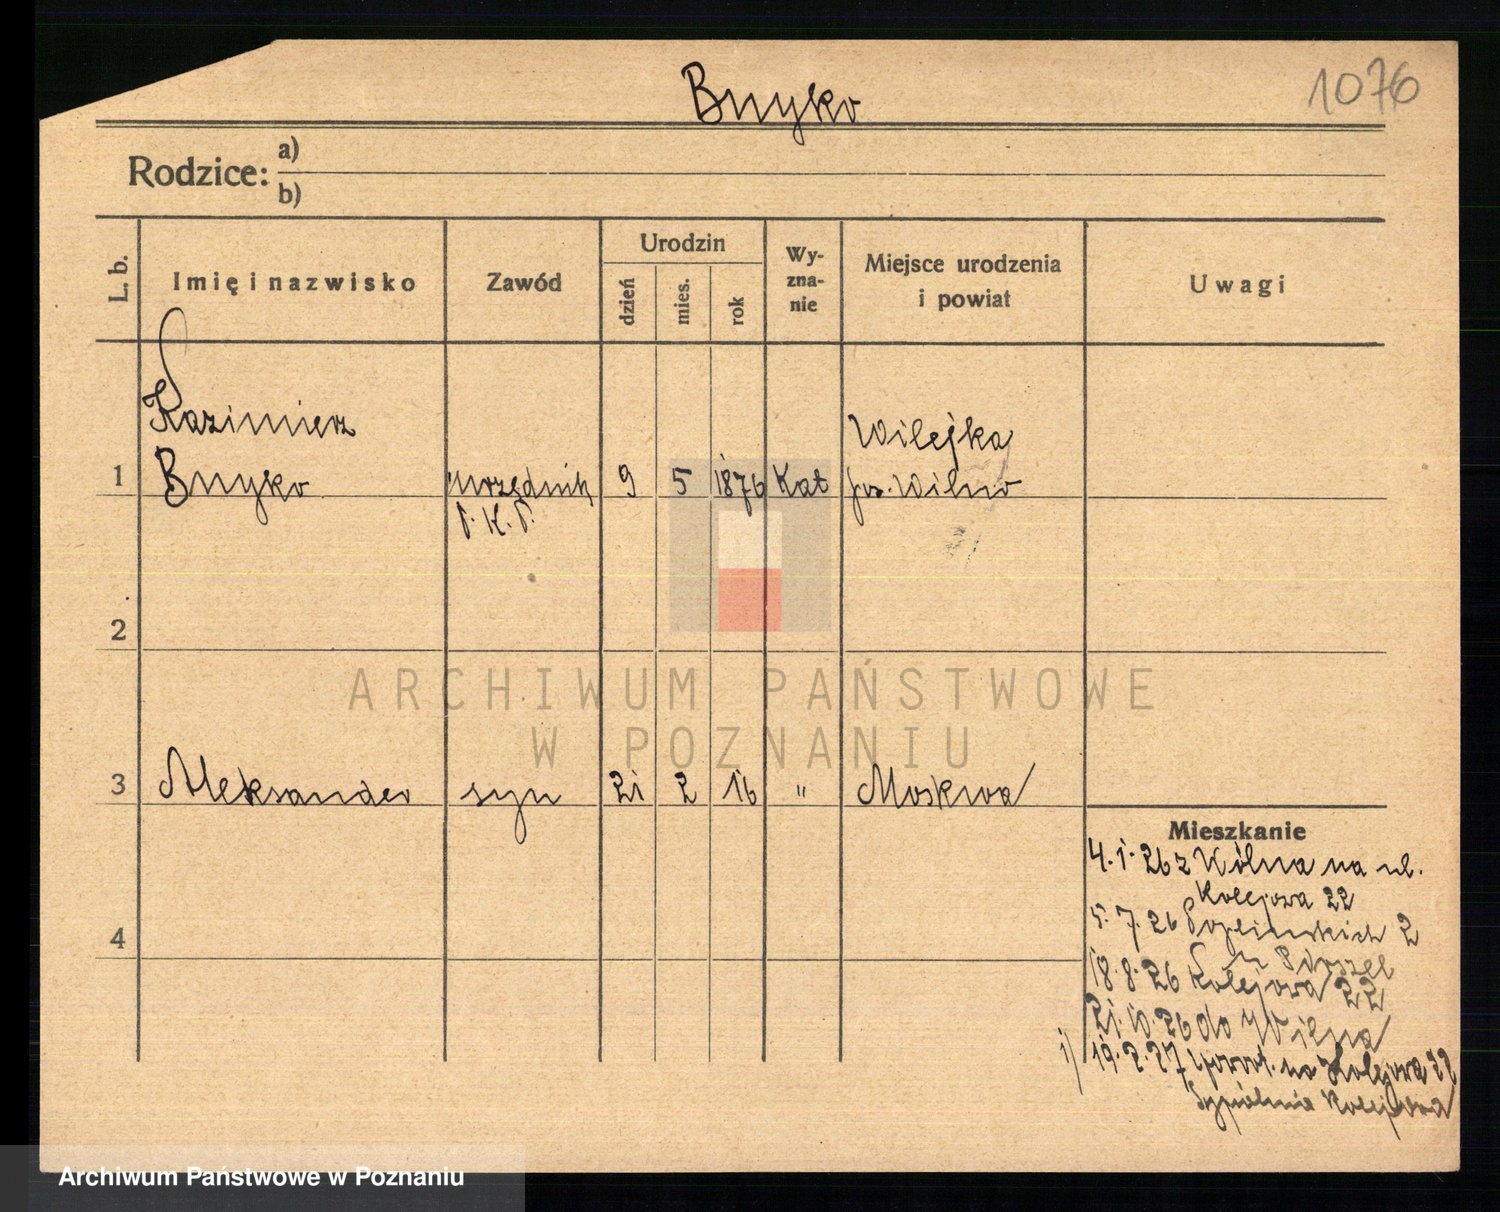 Bnyko
1076
Rodzice: a)
b)
L. b.
Imię i nazwisko
Zawód
Urodzin
dzień
mies.
rok
Wy-
zna-
nie
Miejsce urodzenia
i powiat
Uwagi
Kazimierz
Wilejka
1 Bnyko urzędnik 9 5 1876 Kat pow. Wilno
P. K. P.
2
ARCHIWUM PAŃSTWOWE
W POZNANIU
3 Aleksander syn 21 2 16 " Moskwa
Mieszkanie
4. 1. 26 z Wilna na ul.
Kolejowa 22
5. 7. 26 2
4
18. 8. 26 Kolejowa 22
21. 10. 26 do Wilna
1) 19. 2. 27 na Kolejowa 22
Kolejowa
Archiwum Państwowe w Poznaniu